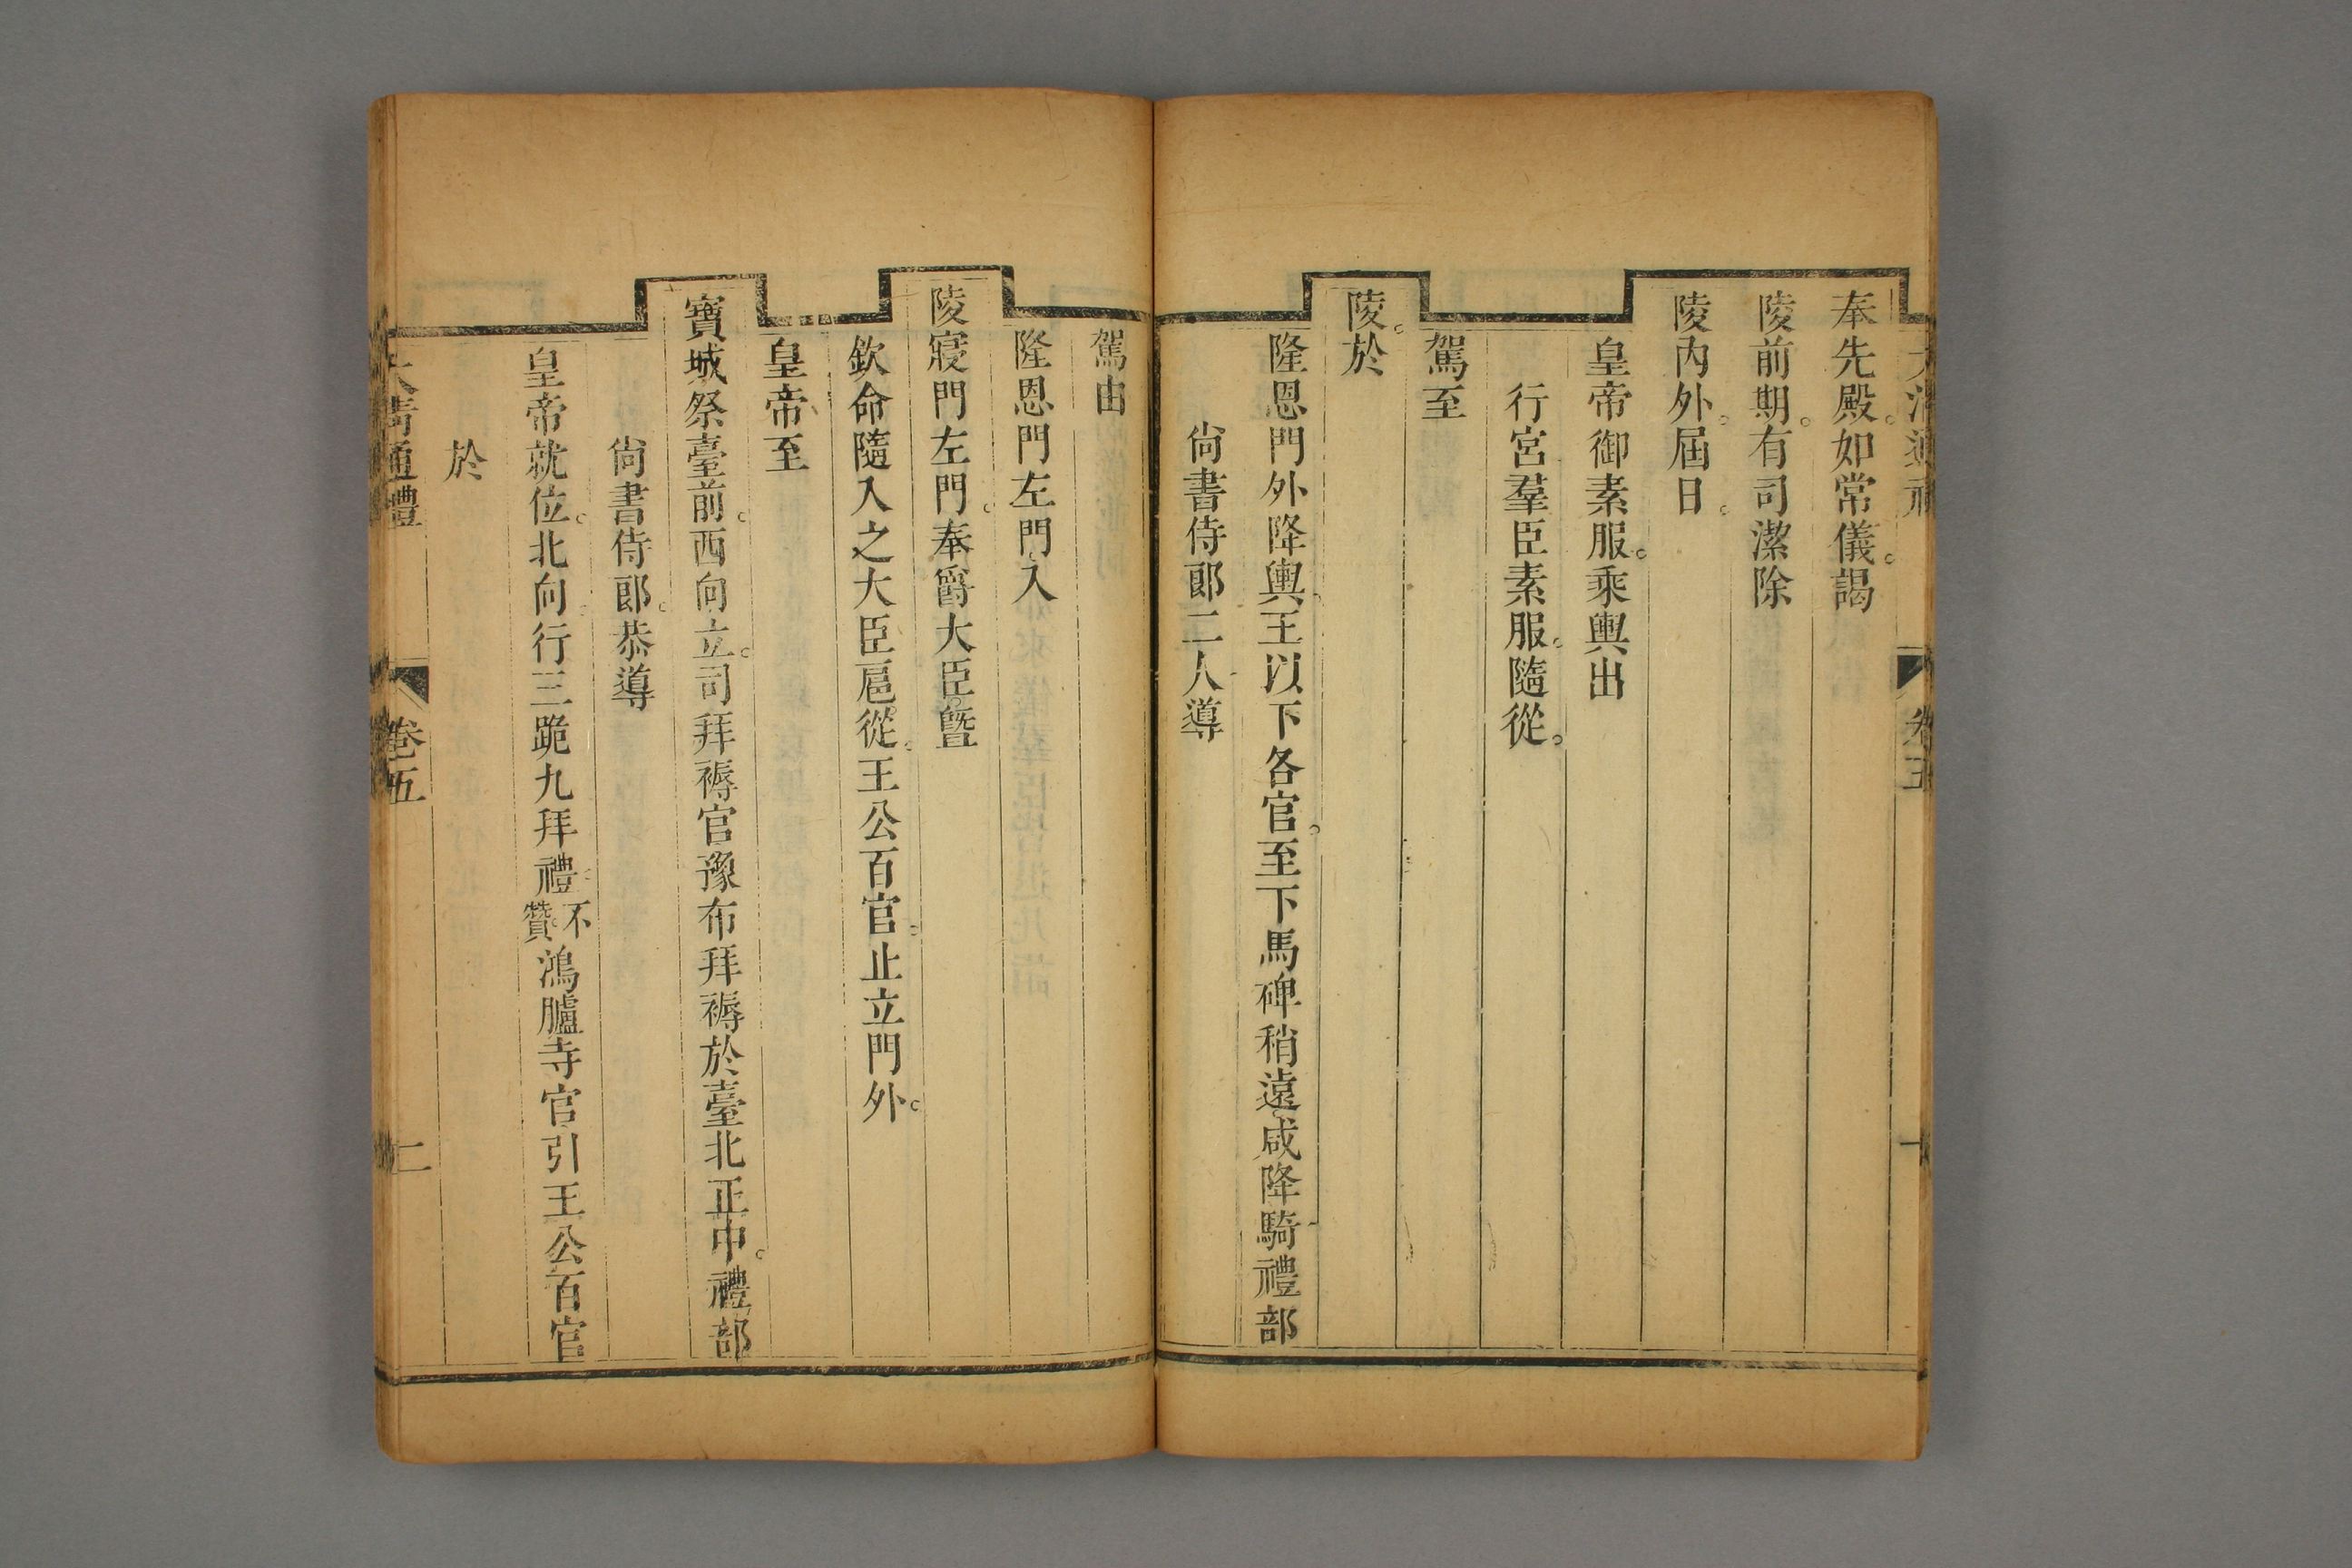 奉先殿。如常儀。謁
陵前期。有司潔除
陵內外。屆日。
皇帝御素服。乘輿出
行宮羣臣素服。隨從。
駕至
陵。於
隆恩門外降輿王以下各官。至下馬碑稍遠咸降騎禮部
尙書侍郎二人導
駕由
隆恩門左門入
陵寢門左門。奉爵大臣。曁
欽命隨入之大臣扈從。王公百官。止立門外。
皇帝至
寶城祭臺前。西向立。司拜褥官豫布拜褥於臺北正中。禮部
尙書侍郎。恭導
皇帝就位。北向。行三跪九拜禮。不贊。鴻臚寺官引王公百官
於
大淸通禮 卷五 二